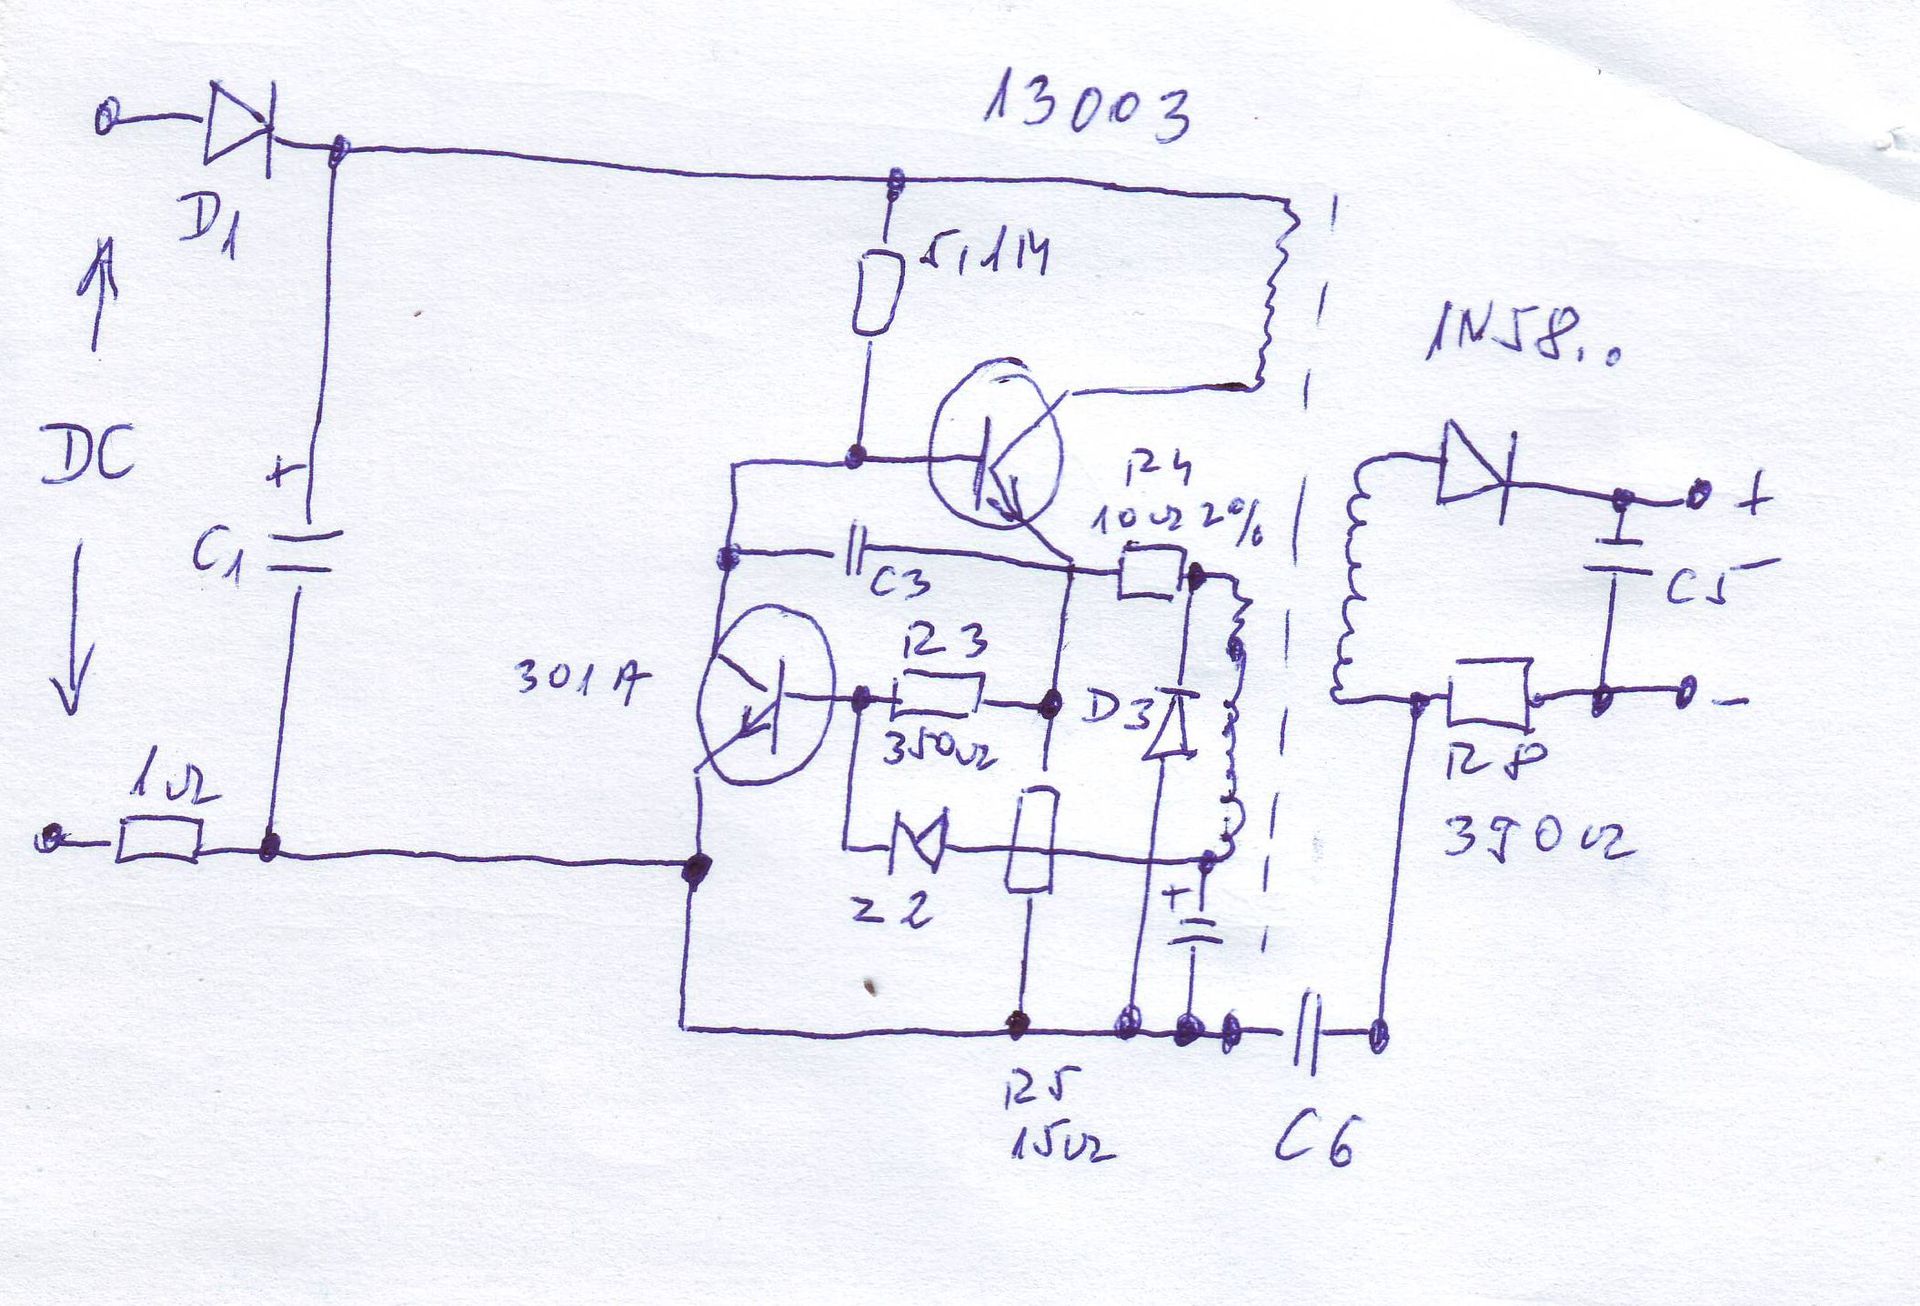 13003
D1
5,1M
1N58..
DC
+
R4
10Ω 2%
+
C1
C3
C5
-
301A
R3
350Ω
D3
1Ω
R8
390Ω
Z2
+
R5
15Ω
C6